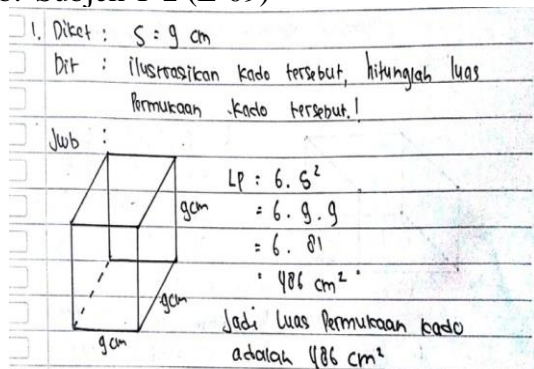 1. Diket : S = 9 cm
Dit : ilustrasikan kado tersebut, hitunglah luas
Permukaan kado tersebut.!
Jwb :
LP : 6. S²
= 6. 9. 9
= 6. 81
= 486 cm²
9cm
9cm
9 cm
Jadi Luas Permukaan kado
adalah 486 cm²